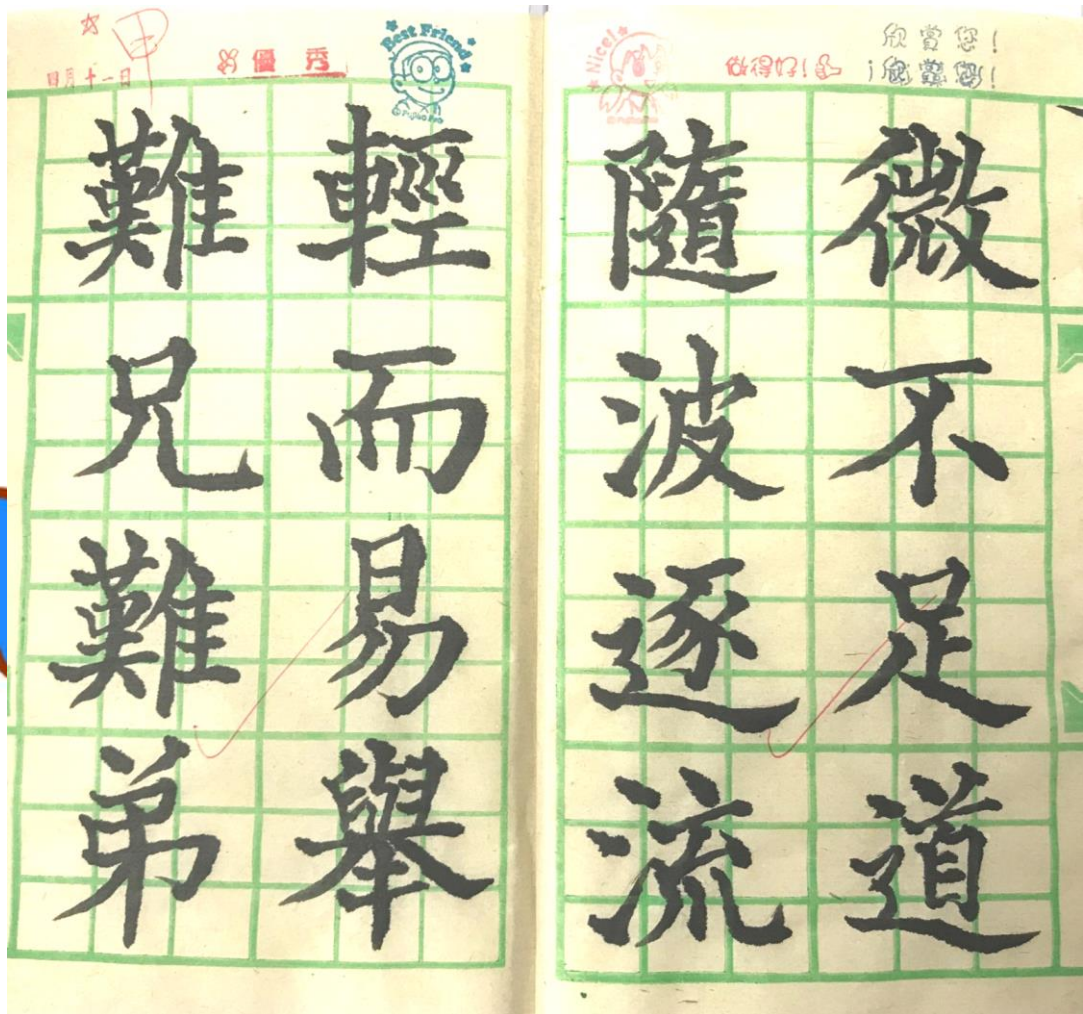 欣賞您!
欣賞您!
做得好!
Nice!
微不足道
隨波逐流
Best Friend
優秀
甲
四月十一日
輕而易舉
難兄難弟